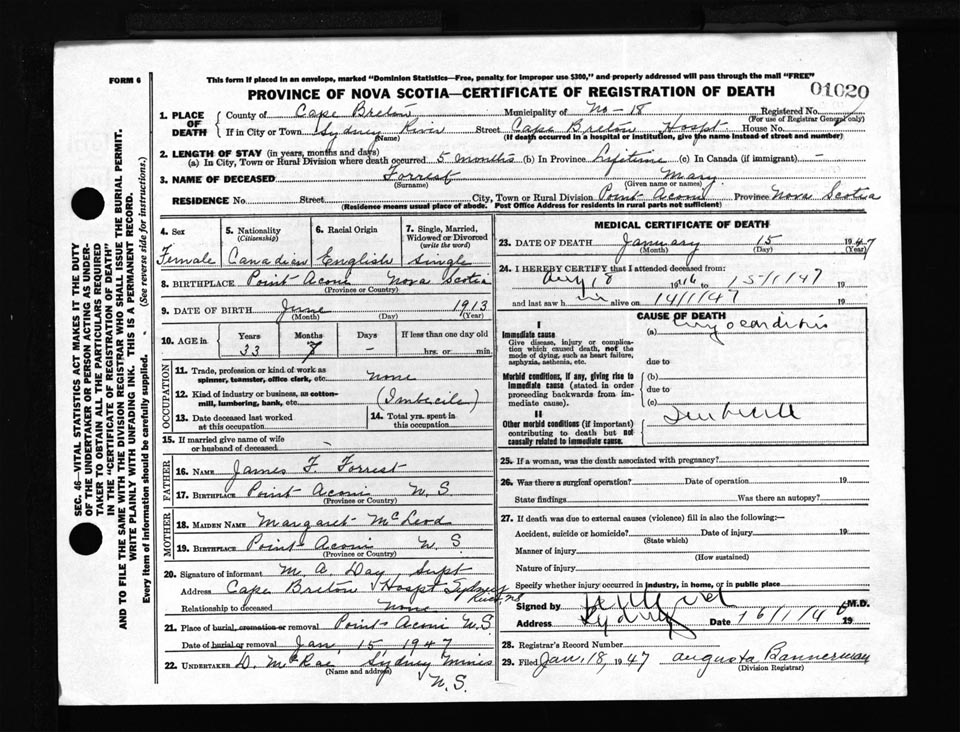 FORM 6
This form if placed in an envelope, marked "Dominion Statistics—Free, penalty for improper use $300," and properly addressed will pass through the mail "FREE"
PROVINCE OF NOVA SCOTIA—CERTIFICATE OF REGISTRATION OF DEATH
01020
1. PLACE OF DEATH
County of Cape Breton Municipality of No-18 Registered No.
(For use of Registrar General only)
If in City or Town Sydney River Street Cape Breton Hospt. House No.
(Name) (If death occurred in a hospital or institution, give the name instead of street and number)
2. LENGTH OF STAY (in years, months and days)
(a) In City, Town or Rural Division where death occurred 5 months (b) In Province Lifetime (c) In Canada (if immigrant) -
3. NAME OF DECEASED Forrest Mary
(Surname) (Given name or names)
RESIDENCE No. Street City, Town or Rural Division Point Aconi Province Nova Scotia
(Residence means usual place of abode. Post Office Address for residents in rural parts not sufficient)
4. Sex
Female
5. Nationality
(Citizenship)
Canadian
6. Racial Origin
English
7. Single, Married, Widowed or Divorced
(write the word)
Single
8. BIRTHPLACE Point Aconi Nova Scotia
(Province or Country)
9. DATE OF BIRTH June 1913
(Month) (Day) (Year)
10. AGE in
Years Months Days If less than one day old
33 7 - hrs. or min.
OCCUPATION
11. Trade, profession or kind of work as spinner, teamster, office clerk, etc. none
12. Kind of industry or business, as cotton-mill, lumbering, bank, etc. (Imbecile)
13. Date deceased last worked at this occupation
14. Total yrs. spent in this occupation
15. If married give name of wife or husband of deceased -
FATHER
16. NAME James F. Forrest
17. BIRTHPLACE Point Aconi N.S.
(Province or Country)
MOTHER
18. MAIDEN NAME Margaret McLeod
19. BIRTHPLACE Point Aconi N.S.
(Province or Country)
20. Signature of informant M. A. Day Supt
Address Cape Breton Hospt Sydney River, NS
Relationship to deceased None
21. Place of burial, cremation or removal Point Aconi N.S.
Date of burial or removal Jan, 15, 1947
22. UNDERTAKER D. McRae Sydney Mines
(Name and address)
N.S.
MEDICAL CERTIFICATE OF DEATH
23. DATE OF DEATH January 15 1947
(Month) (Day) (Year)
24. I HEREBY CERTIFY that I attended deceased from:
Aug 18 1946 15/1/47 19
and last saw h alive on 14/1/47 19
CAUSE OF DEATH
I
Immediate cause
Give disease, injury or complication which caused death, not the mode of dying, such as heart failure, asphyxia, asthenia, etc.
(a) Myocarditis
due to
Morbid conditions, if any, giving rise to immediate cause (stated in order proceeding backwards from immediate cause).
(b)
due to
(c)
II
Other morbid conditions (if important) contributing to death but not causally related to immediate cause.
25. If a woman, was the death associated with pregnancy?
26. Was there a surgical operation? Date of operation 19
State findings Was there an autopsy?
27. If death was due to external causes (violence) fill in also the following:—
Accident, suicide or homicide? Date of injury 19
(State which)
Manner of injury
(How sustained)
Nature of injury
Specify whether injury occurred in industry, in home, or in public place
Signed by M.D.
Address Sydney Date 16/1/46 19
28. Registrar's Record Number
29. Filed Jan, 18, 1947 Augusta Bannerman
(Division Registrar)
SEC. 46—VITAL STATISTICS ACT MAKES IT THE DUTY
OF THE UNDERTAKER OR PERSON ACTING AS UNDER-
TAKER TO OBTAIN ALL THE PARTICULARS REQUIRED
IN THE "CERTIFICATE OF REGISTRATION OF DEATH"
AND TO FILE THE SAME WITH THE DIVISION REGISTRAR WHO SHALL ISSUE THE BURIAL PERMIT.
WRITE PLAINLY WITH UNFADING INK. THIS IS A PERMANENT RECORD.
Every item of information should be carefully supplied. - (See reverse side for instructions.)